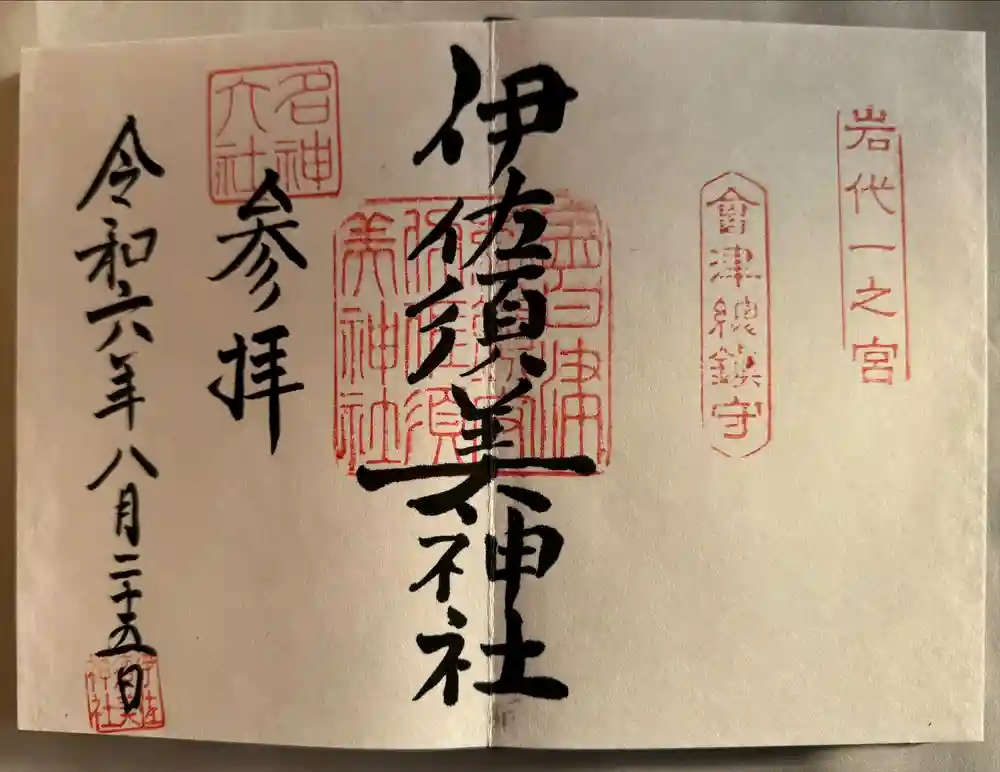 岩代一之宮
會津總鎮守
伊佐須美神社
名神
大社
参拝
令和六年八月二十五日